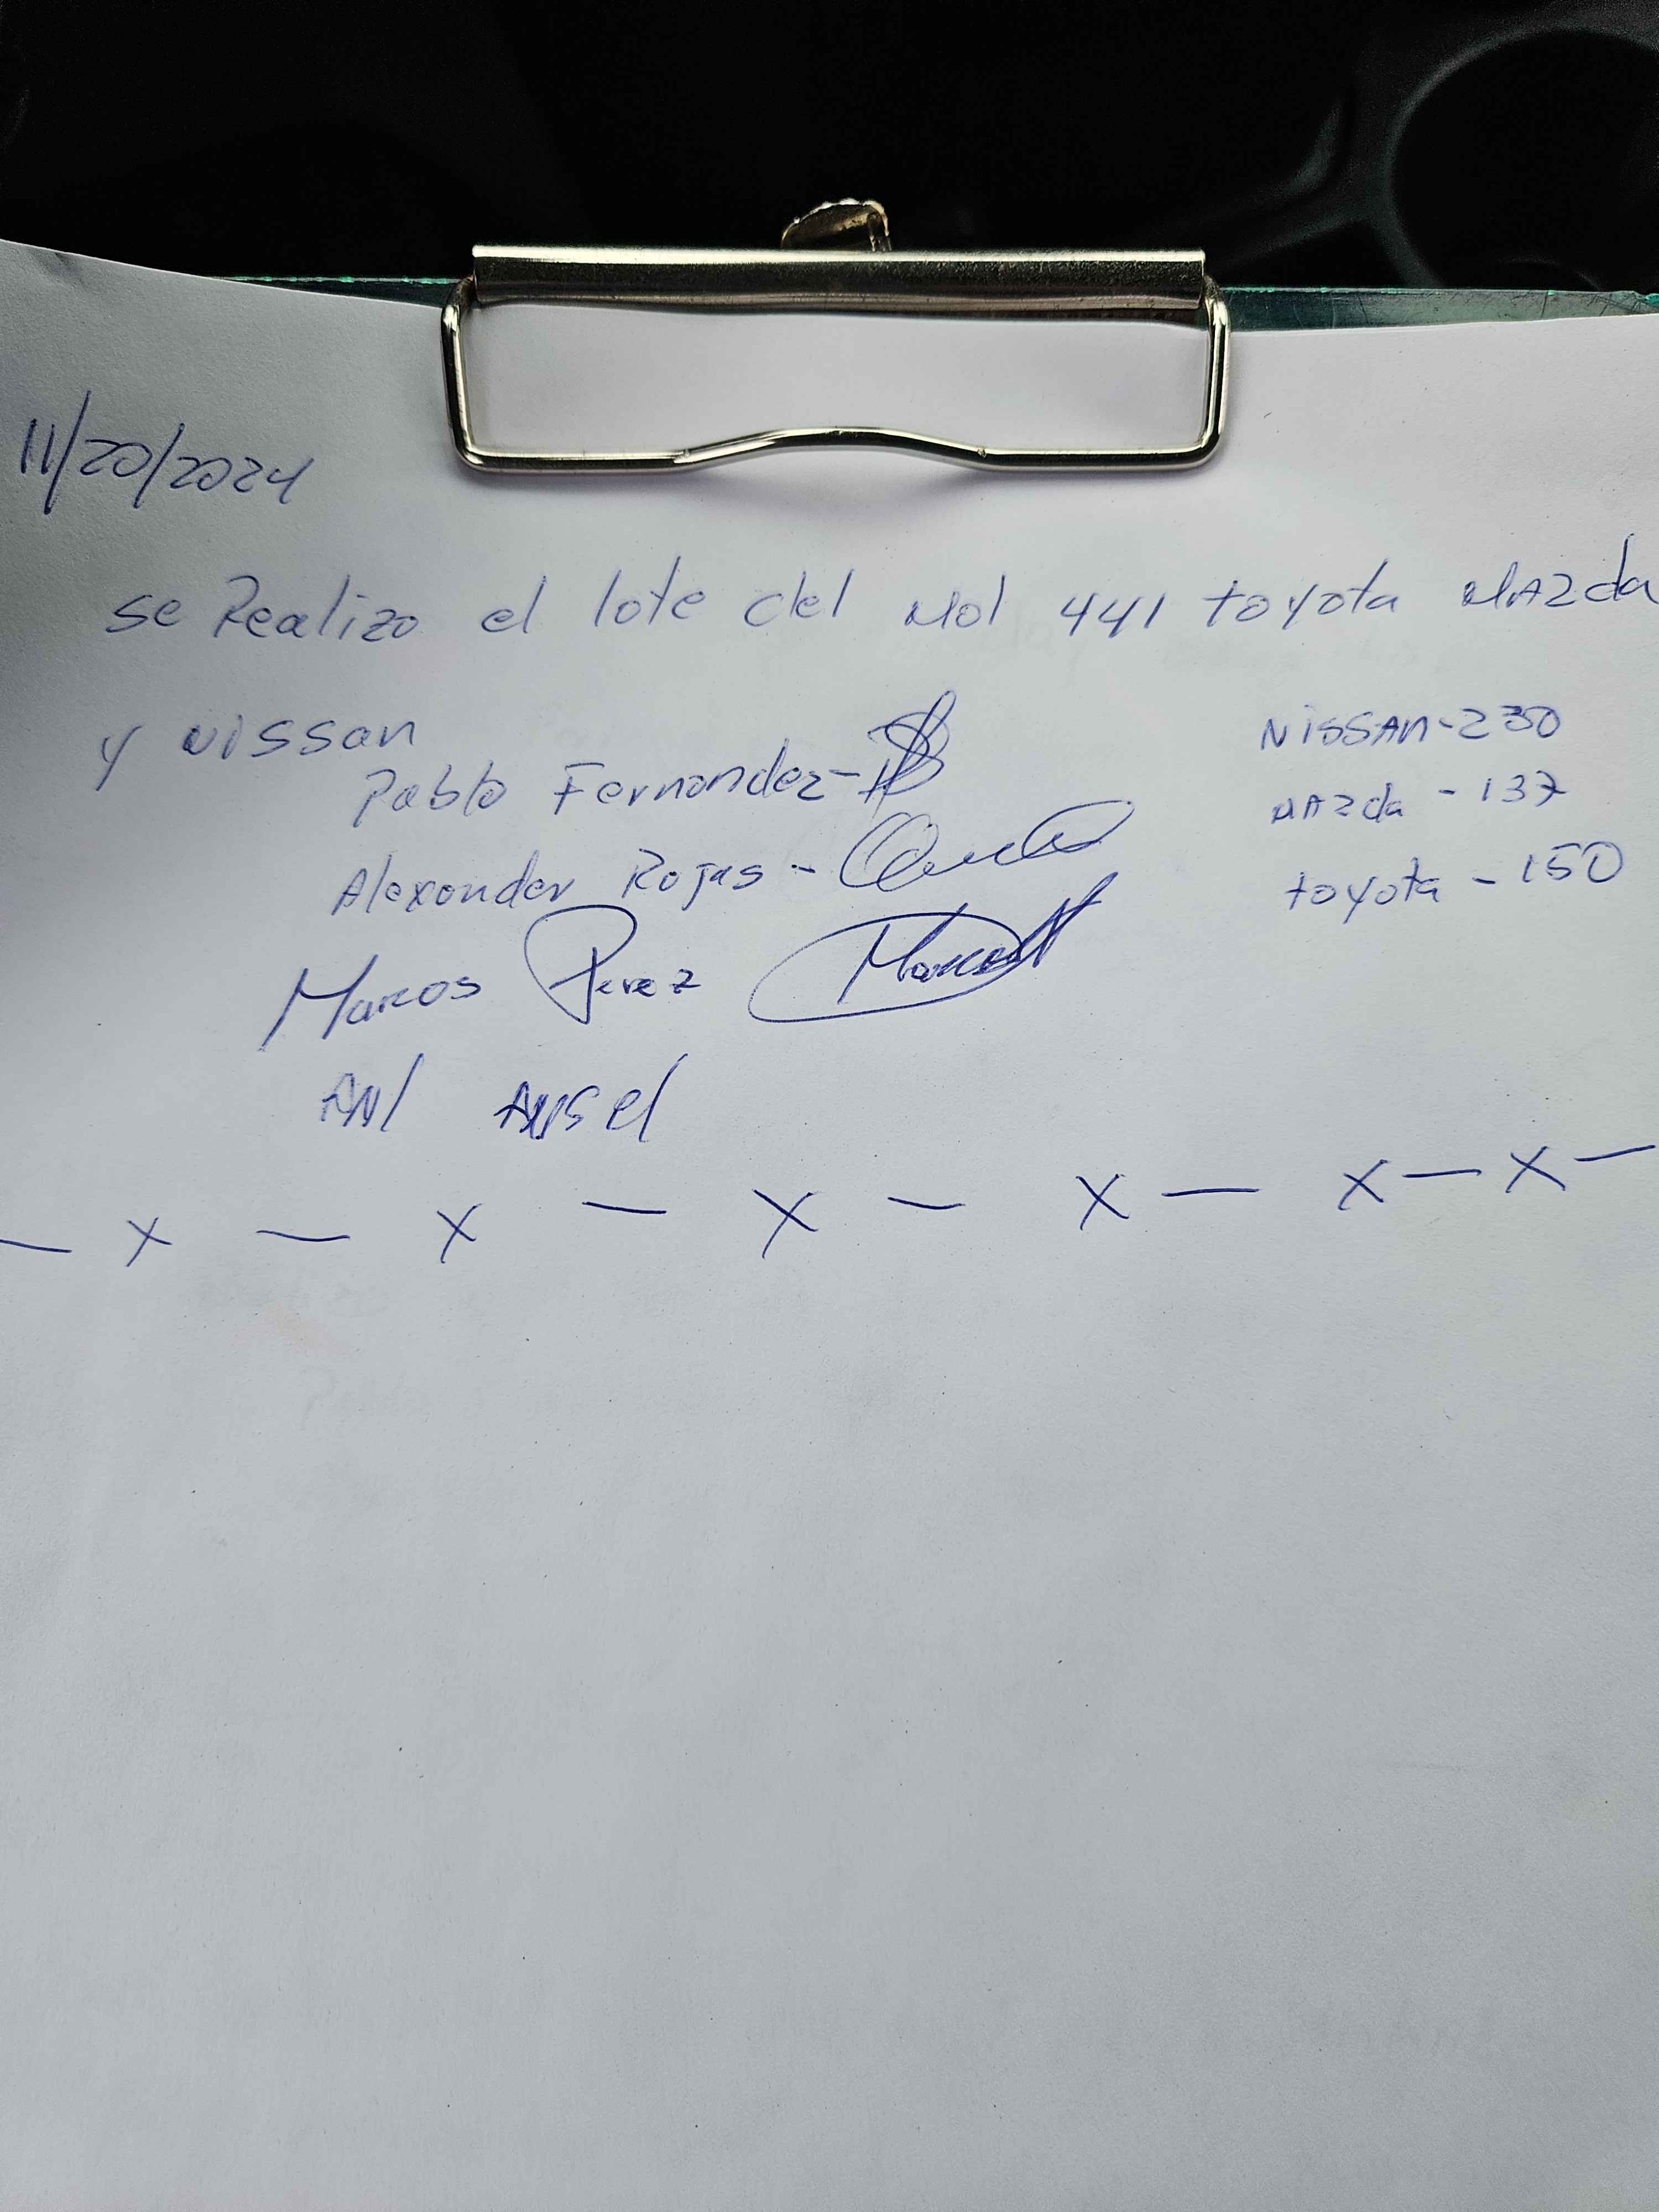 11/20/2024
se Realizo el lote del Mol 441 toyota MAZda
y Nissan
NiSSAn-230
Pablo Fernandez-
MAzda - 137
Alexander Rojas -
toyota - 150
Marcos Perez Marcos
— x — x — x — x — x — x —